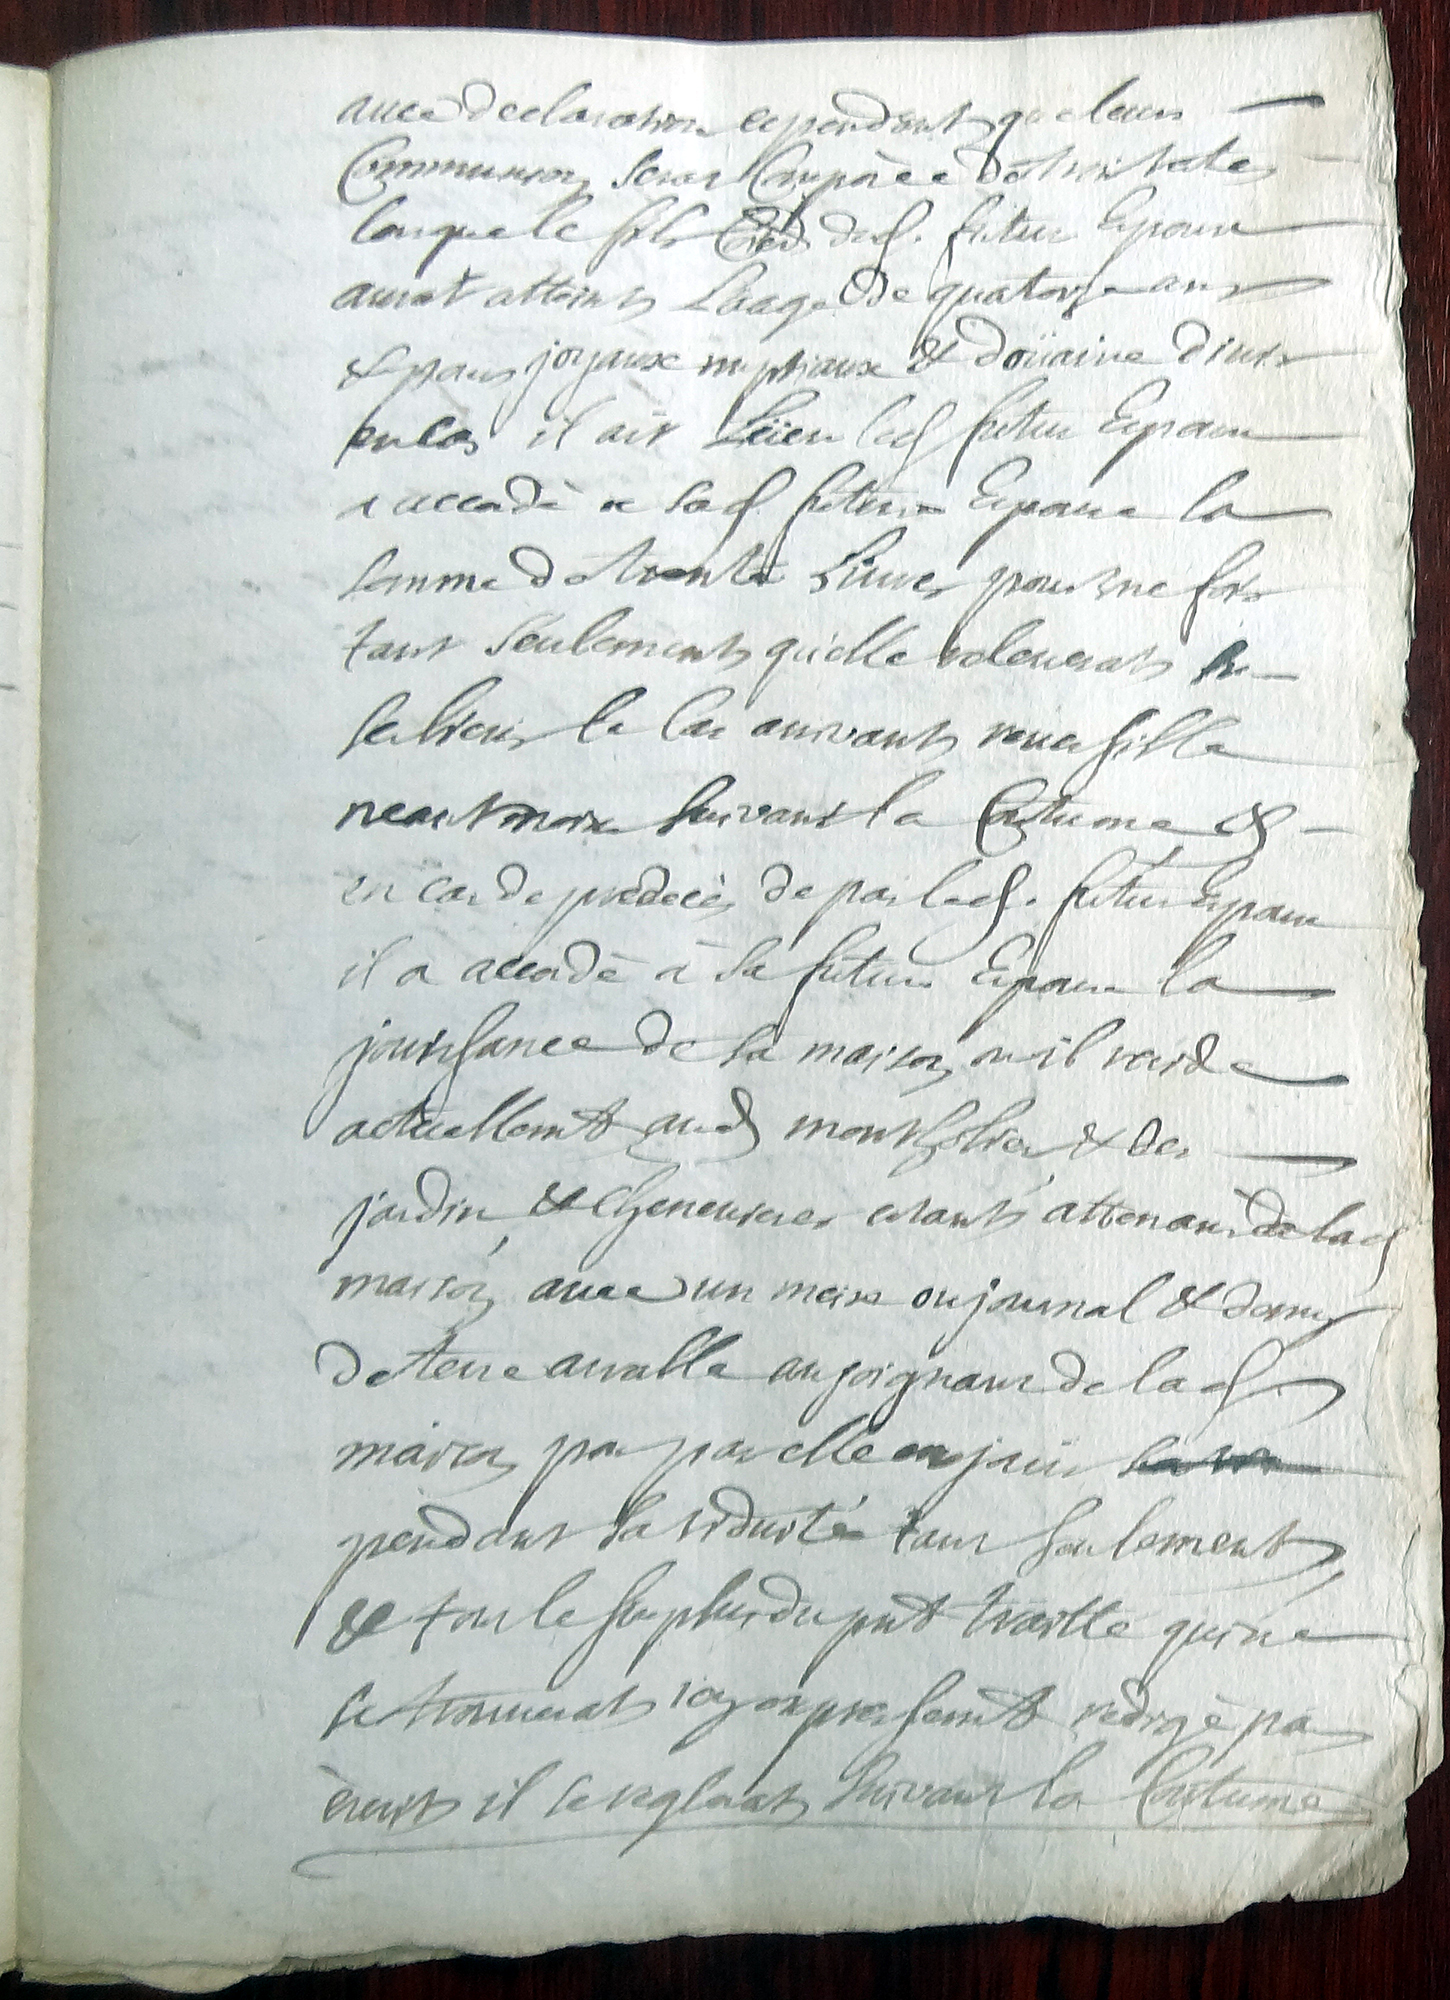 avec declaration cependant que leur
Communion sera Composée de trois testes
lorsque le fils dud. futur Epoux
aurat atteint L'aage de quatorze ans
& pour joyaux nuptiaux & doüaire divis
enfans il ait Léien led futur Epoux
a accordé a sad. future Epouse la
somme de trente Livres pour une fois
tant seulement qu'elle releverat sur
ses biens le cas arrivant reversible
neantmoin suivant la Coutume &
en cas de prédécès de par led. futur Epoux
il a accordé à sa future Epouse la
jouissance de sa maison ou il reside
actuellemt aud montfolier & des
jardin & cheneuieres estants attenans de lad
maison, avec un meix ou journal & demy
de terre arrable au joignant de lad.
maison pour par elle en jouir
pendant sa viduité tant seulement
& tout le surplus du pnt traitté qui ne
se trouverat icy expressemt redigé par
écrit il se reglerat suivant la Coutume